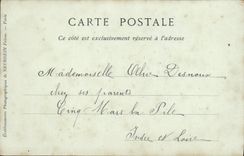 CARTE POSTALE
Ce côté est exclusivement réservé à l'adresse
Mademoiselle Desnoux
chez ses parents
Cinq Mars la Pile
Indre et Loire
Etablissements Photographiques de NEURDEIN Frères. - Paris